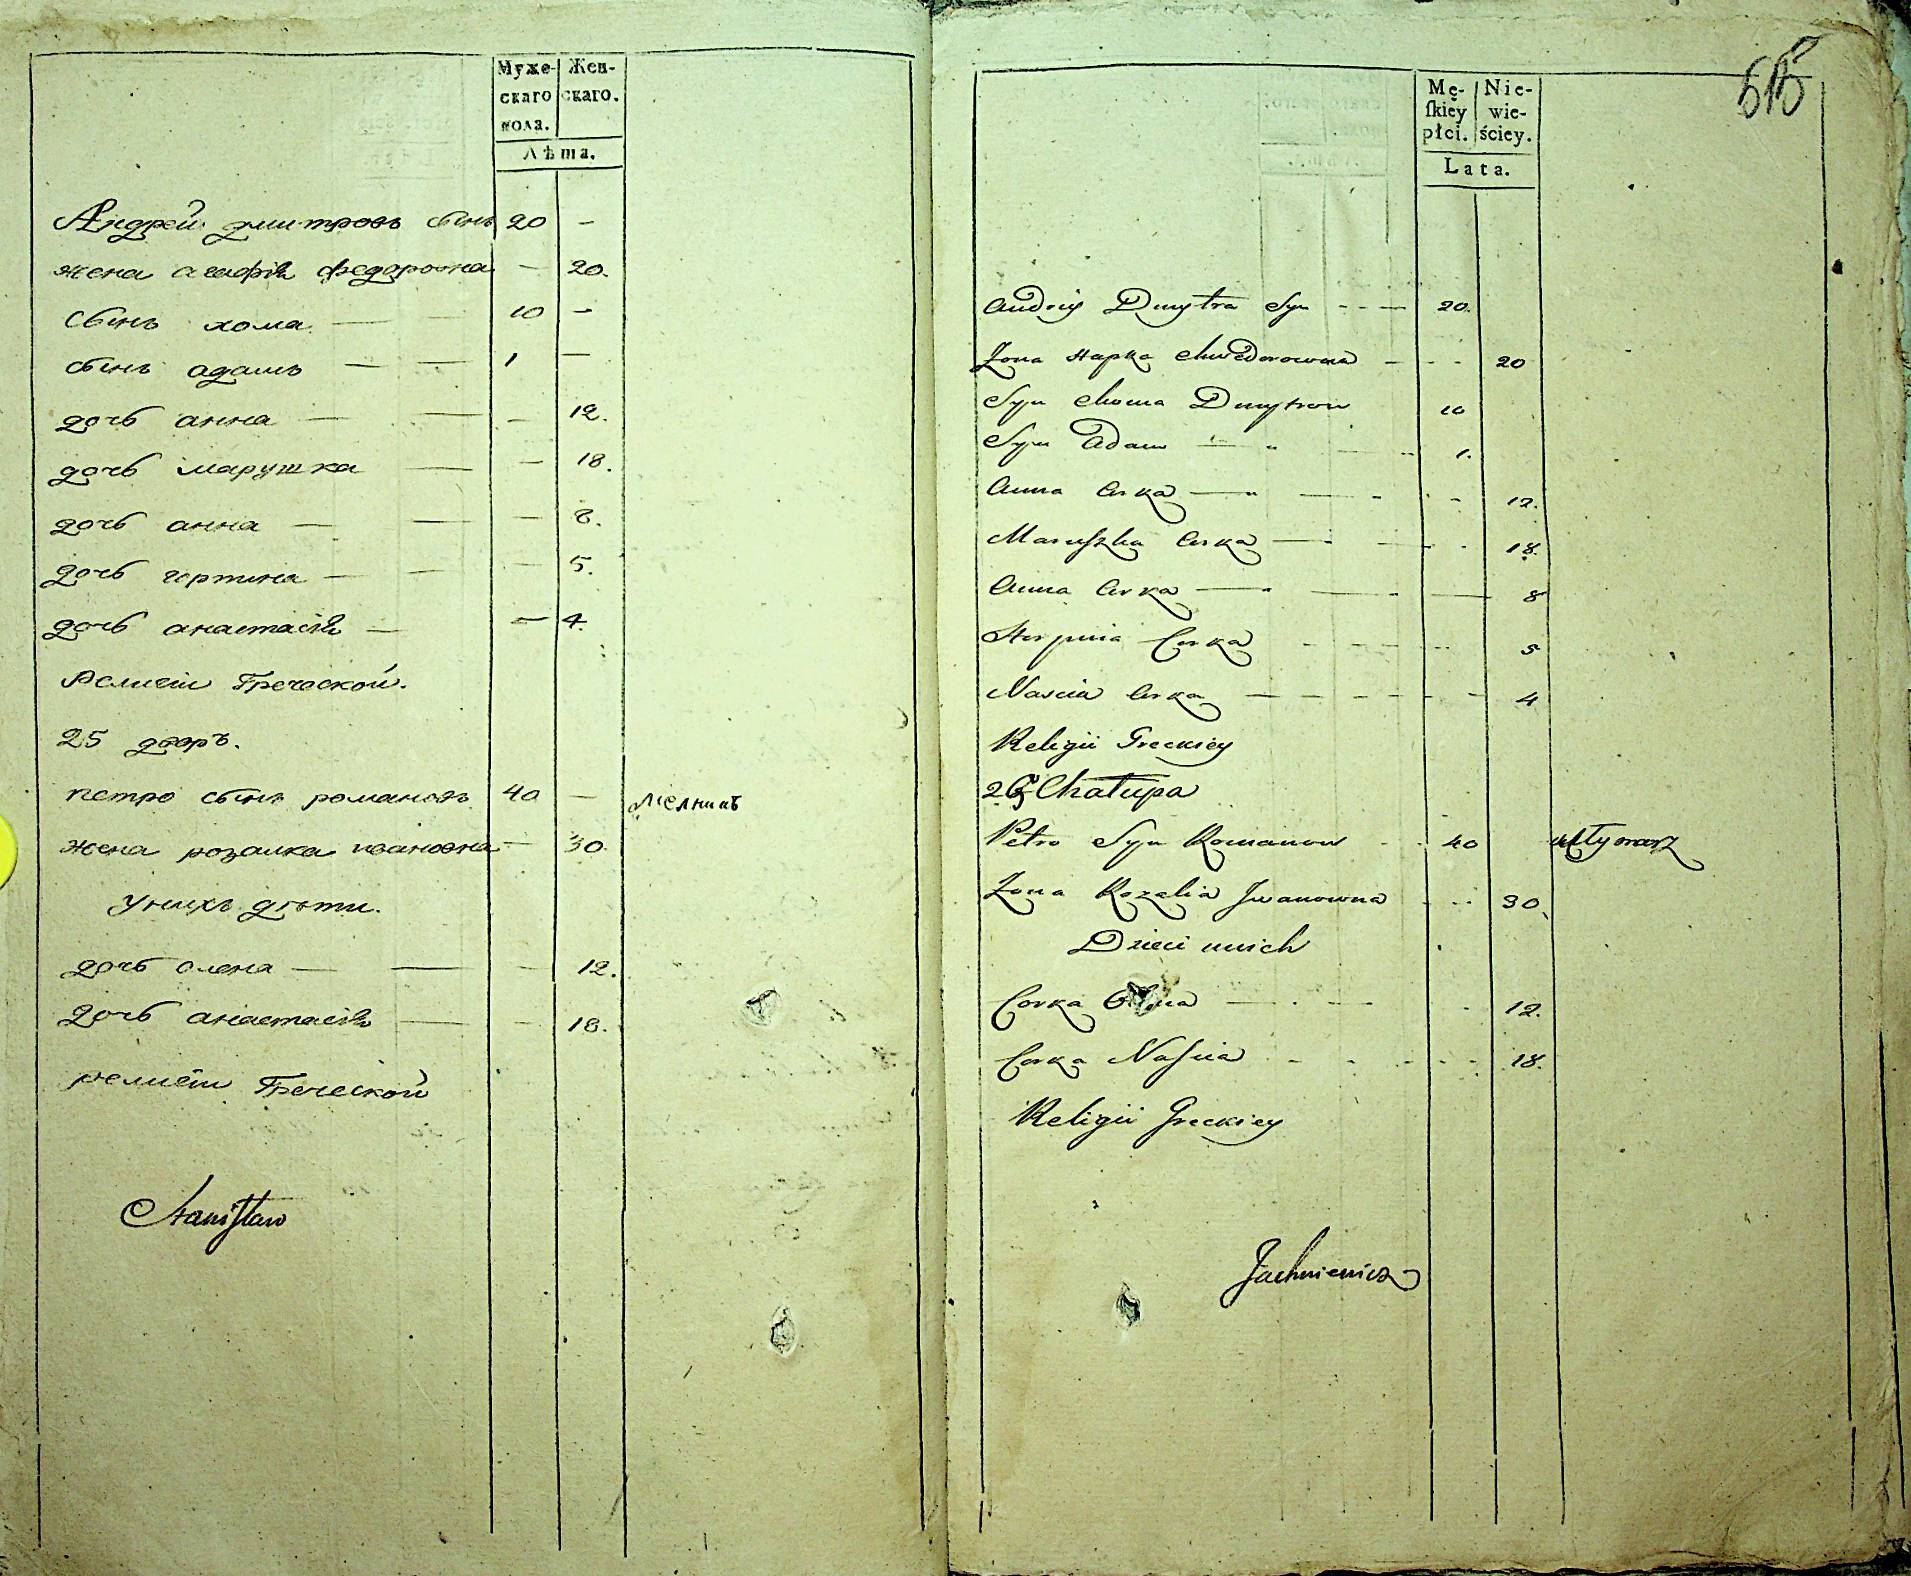 Муже-
скаго
пола.
Жен-
скаго.
Лѣта.
Андрей дмитровъ сынъ 20 —
жена агафія федоровна — 20.
сынъ хома — — 10 —
сынъ адамъ — — 1 —
дочь анна — — — 12.
дочь марушка — — 18.
дочь анна — — — 8.
дочь горпина — — — 5.
дочь анастасія — — 4.
религіи Греческой.
25 дворъ.
петро сынъ романовъ 40 — мелникъ
жена розалка ивановна — 30.
У нихъ дѣти.
дочь олена — — — 12.
дочь анастасія — — 18.
религіи Греческой
Stanisław
515
Mę-
ſkiey
płci.
Nie-
wie-
ściey.
Lata.
Andriy Dmytra Syn - - — 20.
Zona Hapka Chwedorowna - - - 20
Syn Choma Dmytrow 10
Syn Adam — 1.
Anna Corka — — - - - 12.
Maruszka Corka — — - - 18.
Anna Corka — — — 8
Horpina Corka - - - - 5
Nascia Corka — — - - - - 4
Religii Greckiey
25 Chałupa
Petro Syn Romanow - - 40 Młynarz
Zona Rozalia Jwanowna - - - 30.
Dzieci unich
Corka — - - - 12.
Corka Naścia - - - - - 18.
Religii Greckiey
Jachniewicz